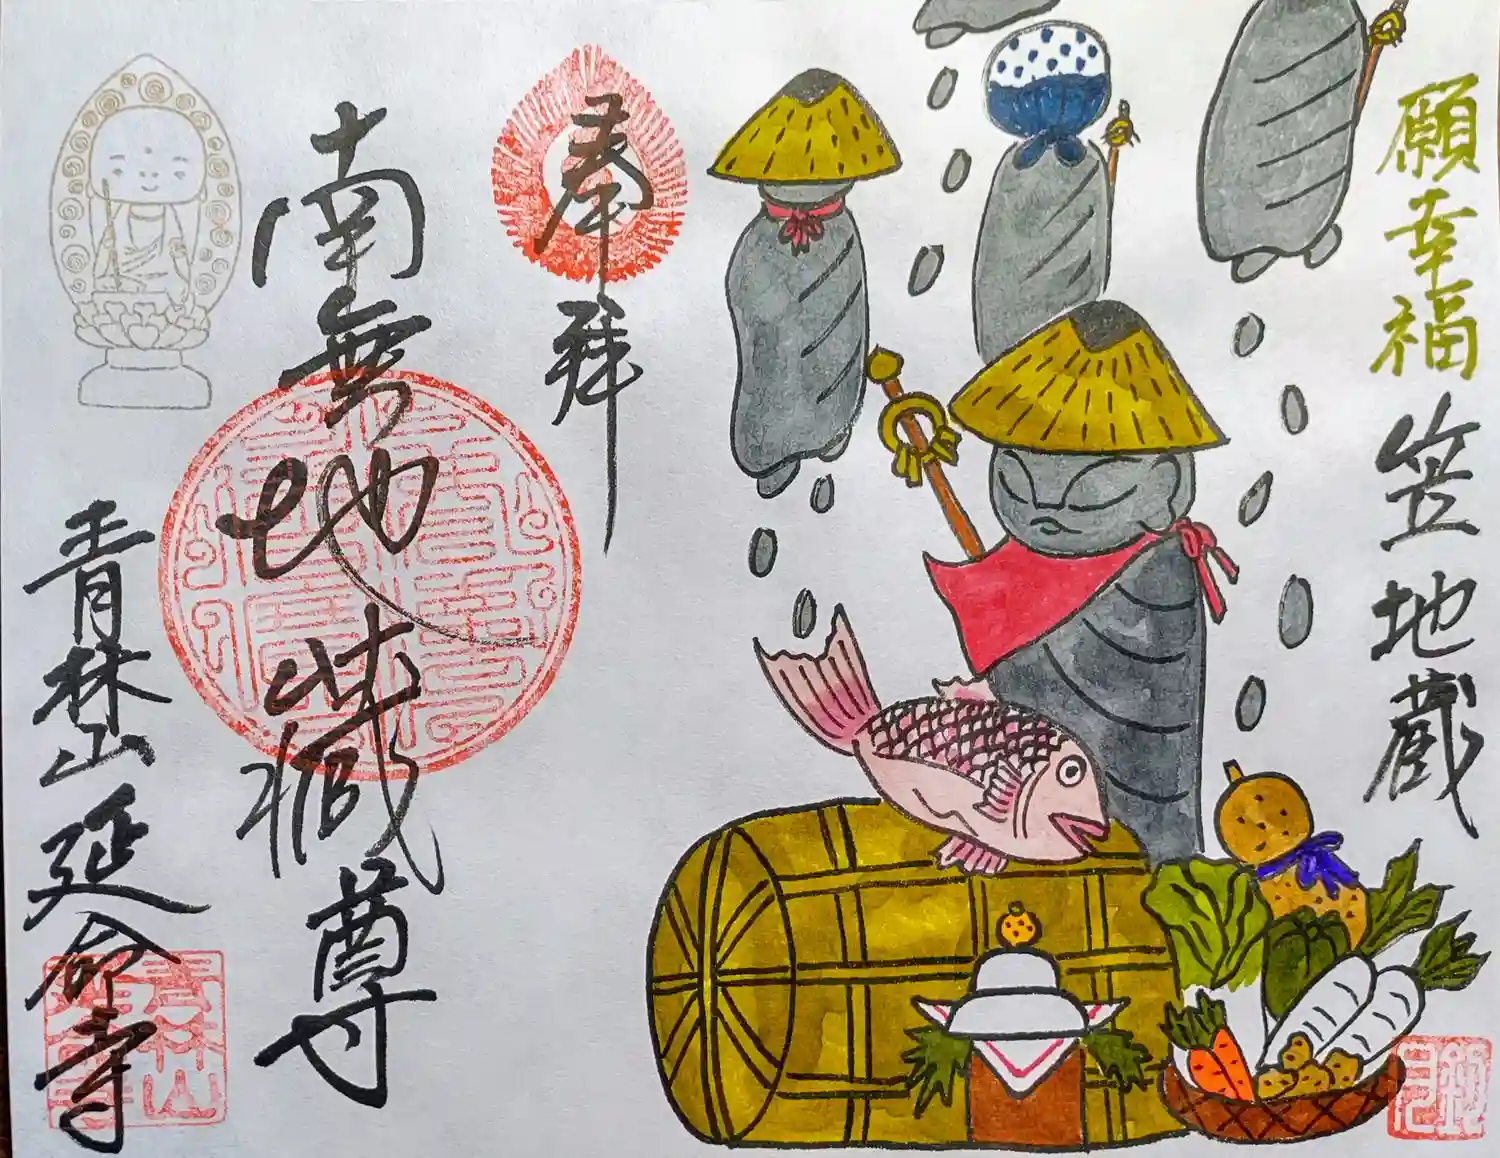 願幸福
笠地蔵
奉拝
南無地蔵尊
青林山延命寺
青林山